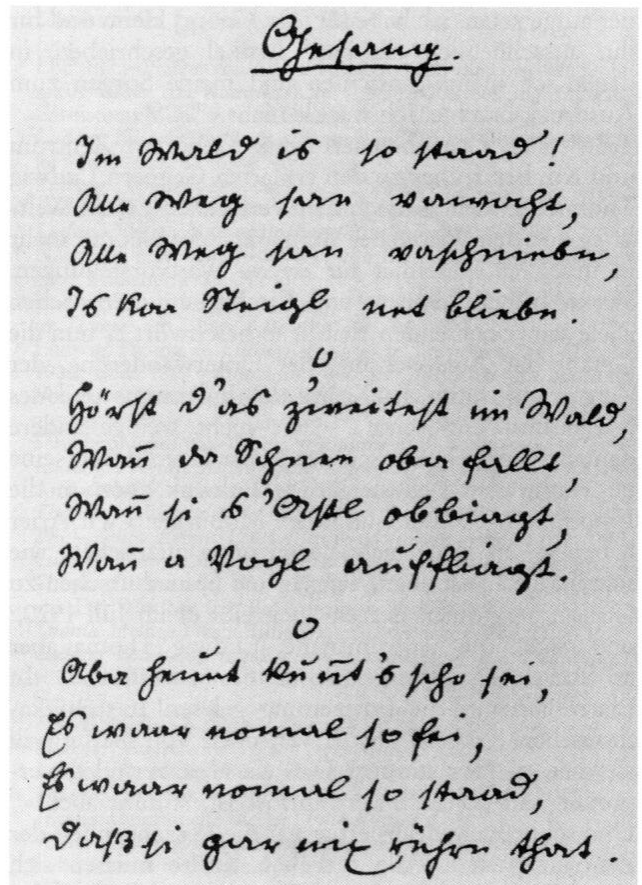 Gesang.
Im Wald is so staad!
Alle Weg san vawaht,
Alle Weg san vaschniebn,
Is koa Steigl net bliebn.
Hörst d'as z'weitest im Wald,
Wan̄ da Schnee oba fallt,
Wan̄ si s'Astl obbiagt,
Wan̄ a Vogl auffliagt.
Aba heunt kun̄t's scho sei,
Es waar nomal so fei,
Es waar nomal so staad,
Daß si gar nix rührn that.